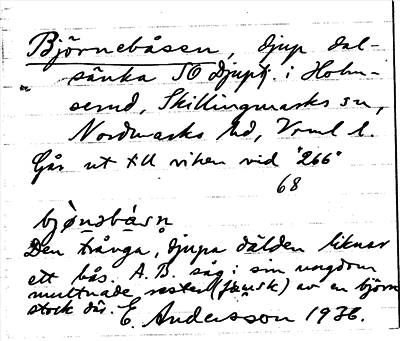 Björnebåsen, djup dal-
sänka SO Djuptj. i Holm-
serud, Skillingmarks sn,
Nordmarks hd, Vrml l.
Går ut till viken vid "266"
68
bjònsbásn
Den trånga, djupa dälden liknar
ett bås. A.B. såg i sin ungdom
multnade rester (fausk) av en björn
stock där. E. Andersson 1936.